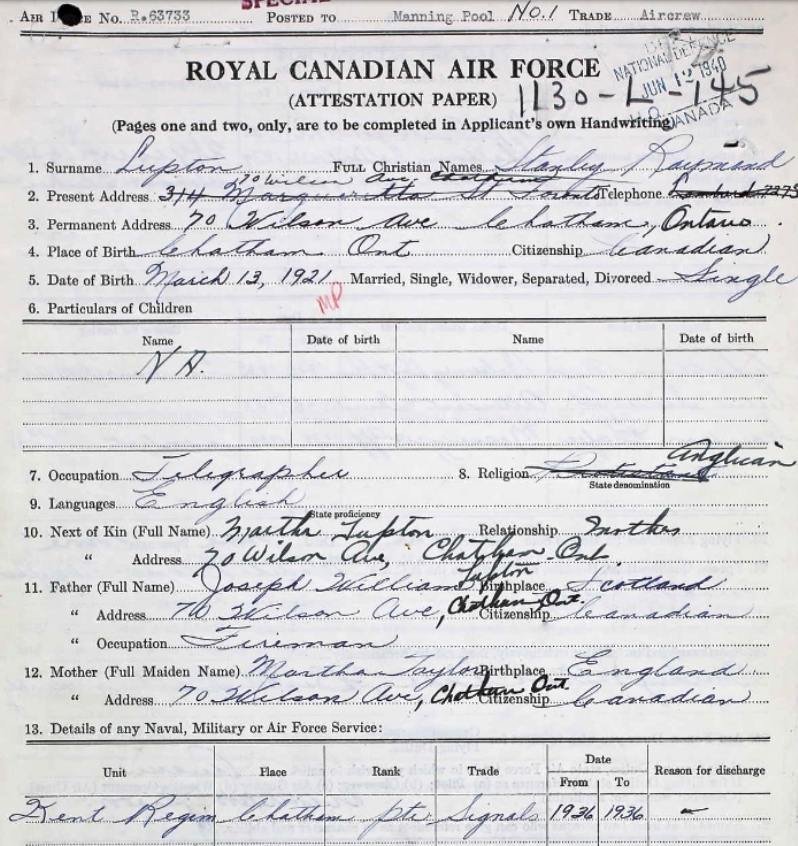 SPECIAL
AIR FORCE No. R.63733 POSTED TO Manning Pool No. 1 TRADE Aircrew
ROYAL CANADIAN AIR FORCE
NATIONAL DEFENCE
JUN 12 1940
H.Q. CANADA
(ATTESTATION PAPER) 1130-L-145
(Pages one and two, only, are to be completed in Applicant's own Handwriting)
1. Surname Lupton FULL Christian Names Stanley Raymond
70 Wilson Ave Chatham
2. Present Address 314 Margueretta St Toronto Telephone Lombard 7273
3. Permanent Address 70 Wilson Ave Chatham, Ontario.
4. Place of Birth Chatham Ont Citizenship Canadian
5. Date of Birth March 13, 1921 Married, Single, Widower, Separated, Divorced Single
MP
6. Particulars of Children
Name Date of birth Name Date of birth
N A.
Anglican
7. Occupation Telegrapher 8. Religion Protestant
State denomination
9. Languages English
State proficiency
10. Next of Kin (Full Name) Martha Lupton Relationship Mother
" Address 70 Wilson Ave, Chatham Ont.
11. Father (Full Name) Joseph William Lupton Birthplace Scotland
" Address 70 Wilson Ave, Chatham Ont. Citizenship Canadian
" Occupation Fireman
12. Mother (Full Maiden Name) Martha Taylor Birthplace England
" Address 70 Wilson Ave, Chatham Ont. Citizenship Canadian
13. Details of any Naval, Military or Air Force Service:
Unit Place Rank Trade Date From To Reason for discharge
Kent Regim Chatham pte Signals 1936 1936 —